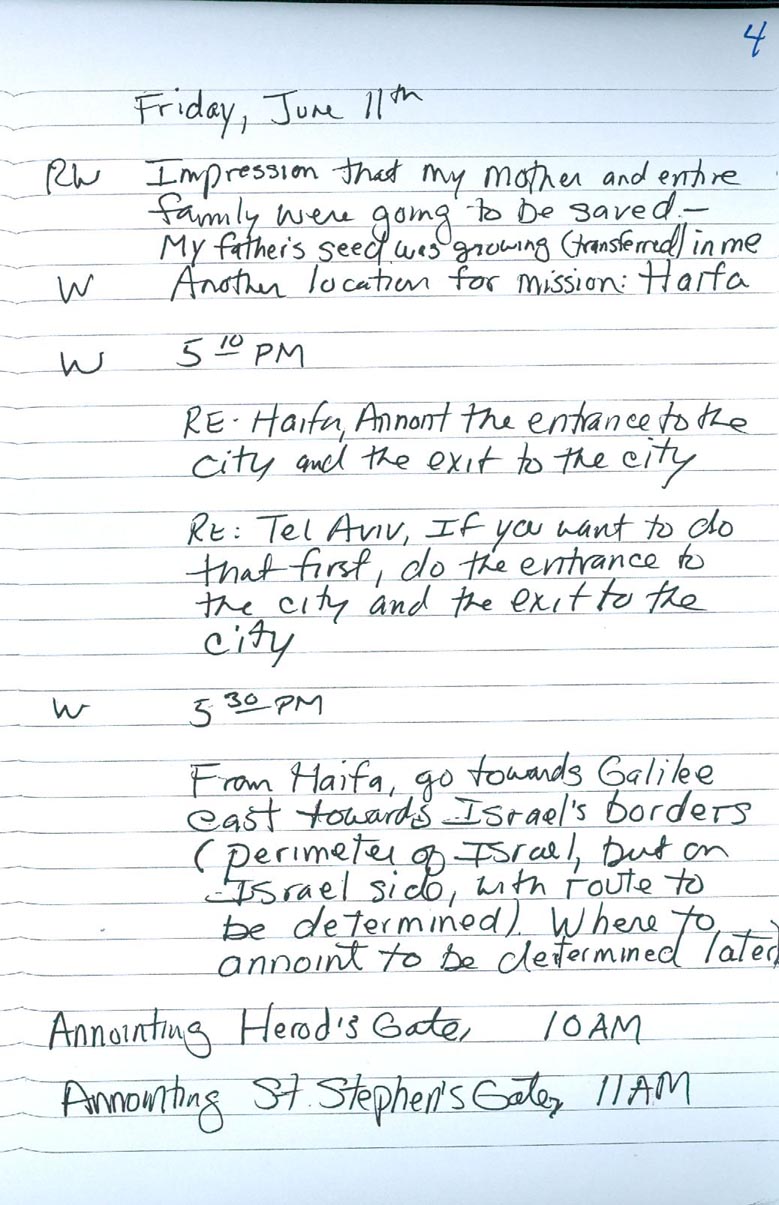 4
Friday, June 11th
RW Impression that my mother and entire
family were going to be saved.—
My father's seed was growing (transferred) in me
W Another location for mission: Haifa
W 5 10 PM
RE. Haifa, Annont the entrance to the
city and the exit to the city
RE: Tel Aviv, If you want to do
that first, do the entrance to
the city and the exit to the
city
W 5 30 PM
From Haifa, go towards Galilee
east towards Israel's borders
(perimeter of Israel, but on
Israel side, with route to
be determined). Where to
annoint to be determined later
Annointing Herod's Gate, 10 AM
Annointing St. Stephen's Gate, 11 AM